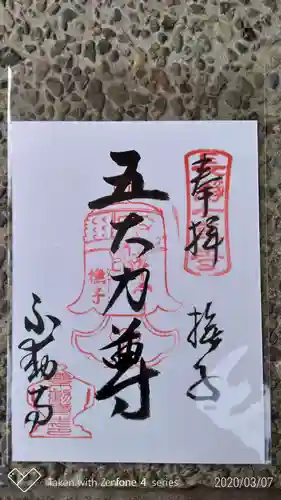 奉拝
撫子
五大力尊
不動寺
撫子
Taken with Zenfone 4 series
2020/03/07